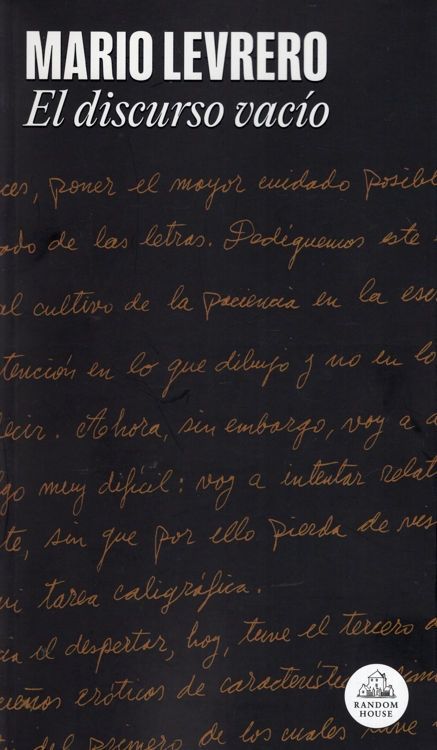 MARIO LEVRERO
El discurso vacío
ces, poner el mayor cuidado posibl
ado de las letras. Dediquemos este
al cultivo de la paciencia en la esc
tención en lo que dibujo y no en lo
decir. Ahora, sin embargo, voy a
lgo muy difícil: voy a intentar relat
te, sin que por ello pierda de
mi tarea caligráfica.
el despertar, hoy, tuve el tercero
ueños eróticos de característic
del primero de los cuales tuve
RANDOM
HOUSE